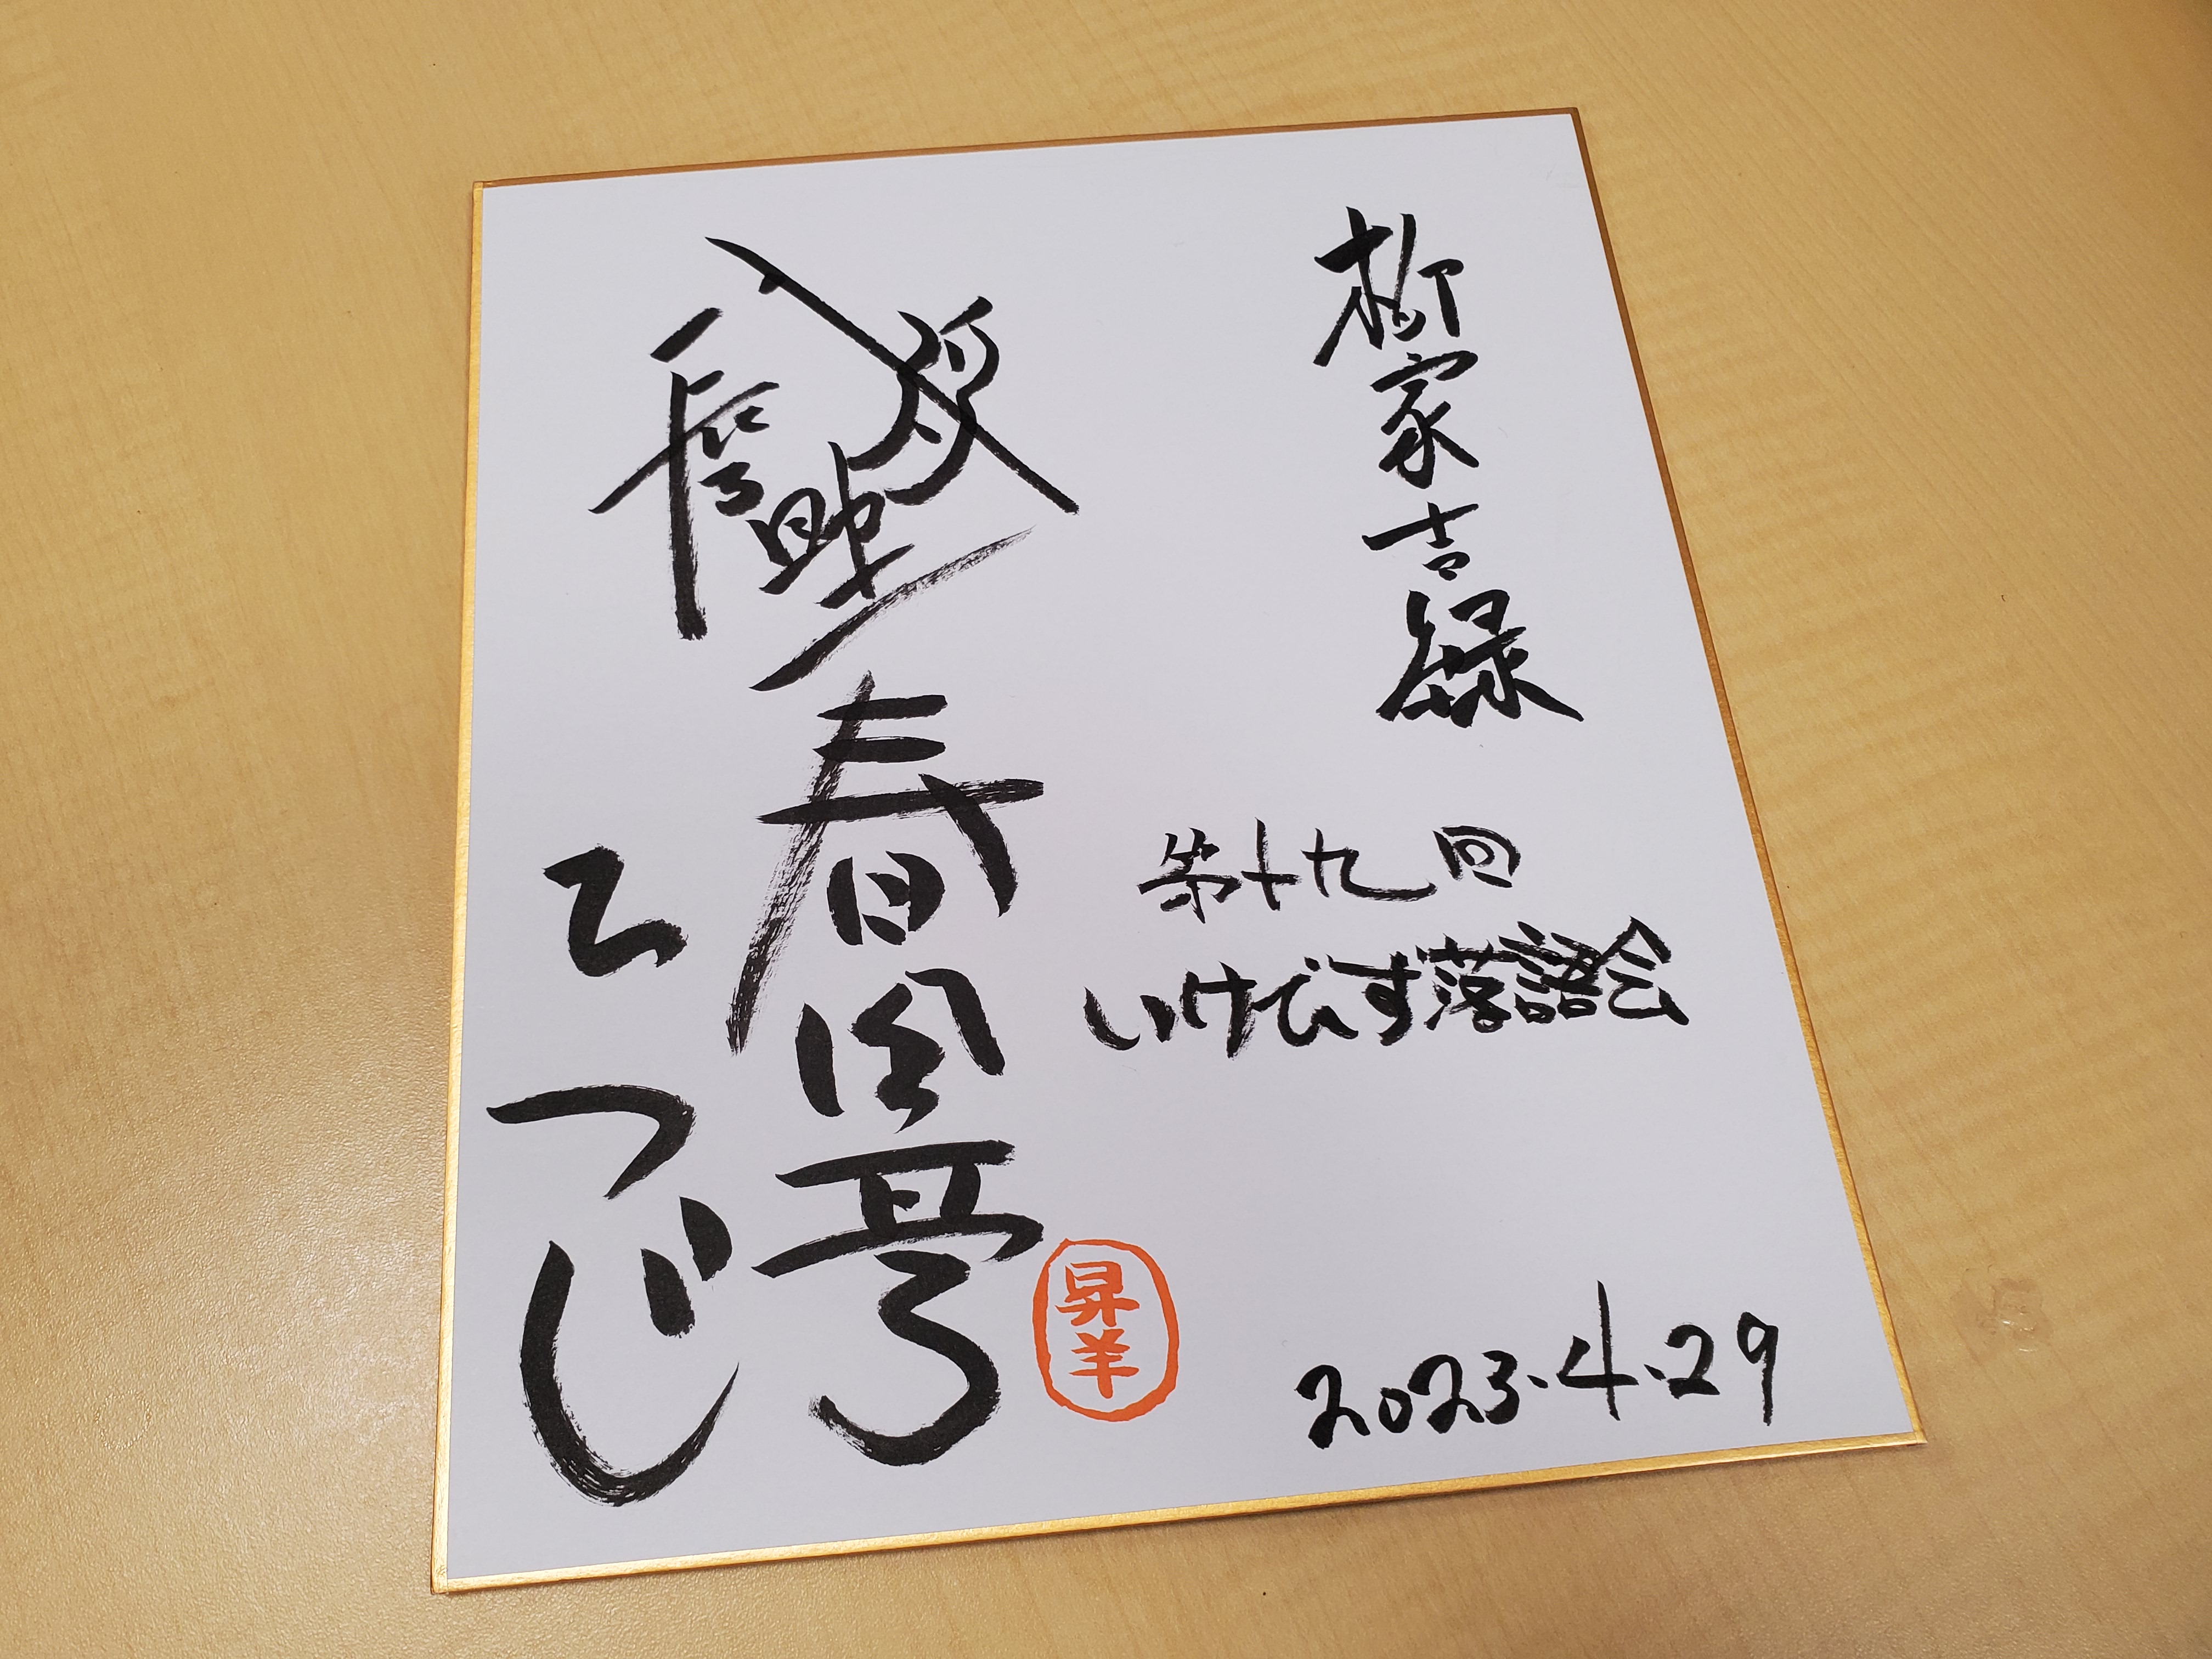 柳家吉緑
第十九回
いけびず落語会
2023.4.29
春風亭
昇羊
ひつじ